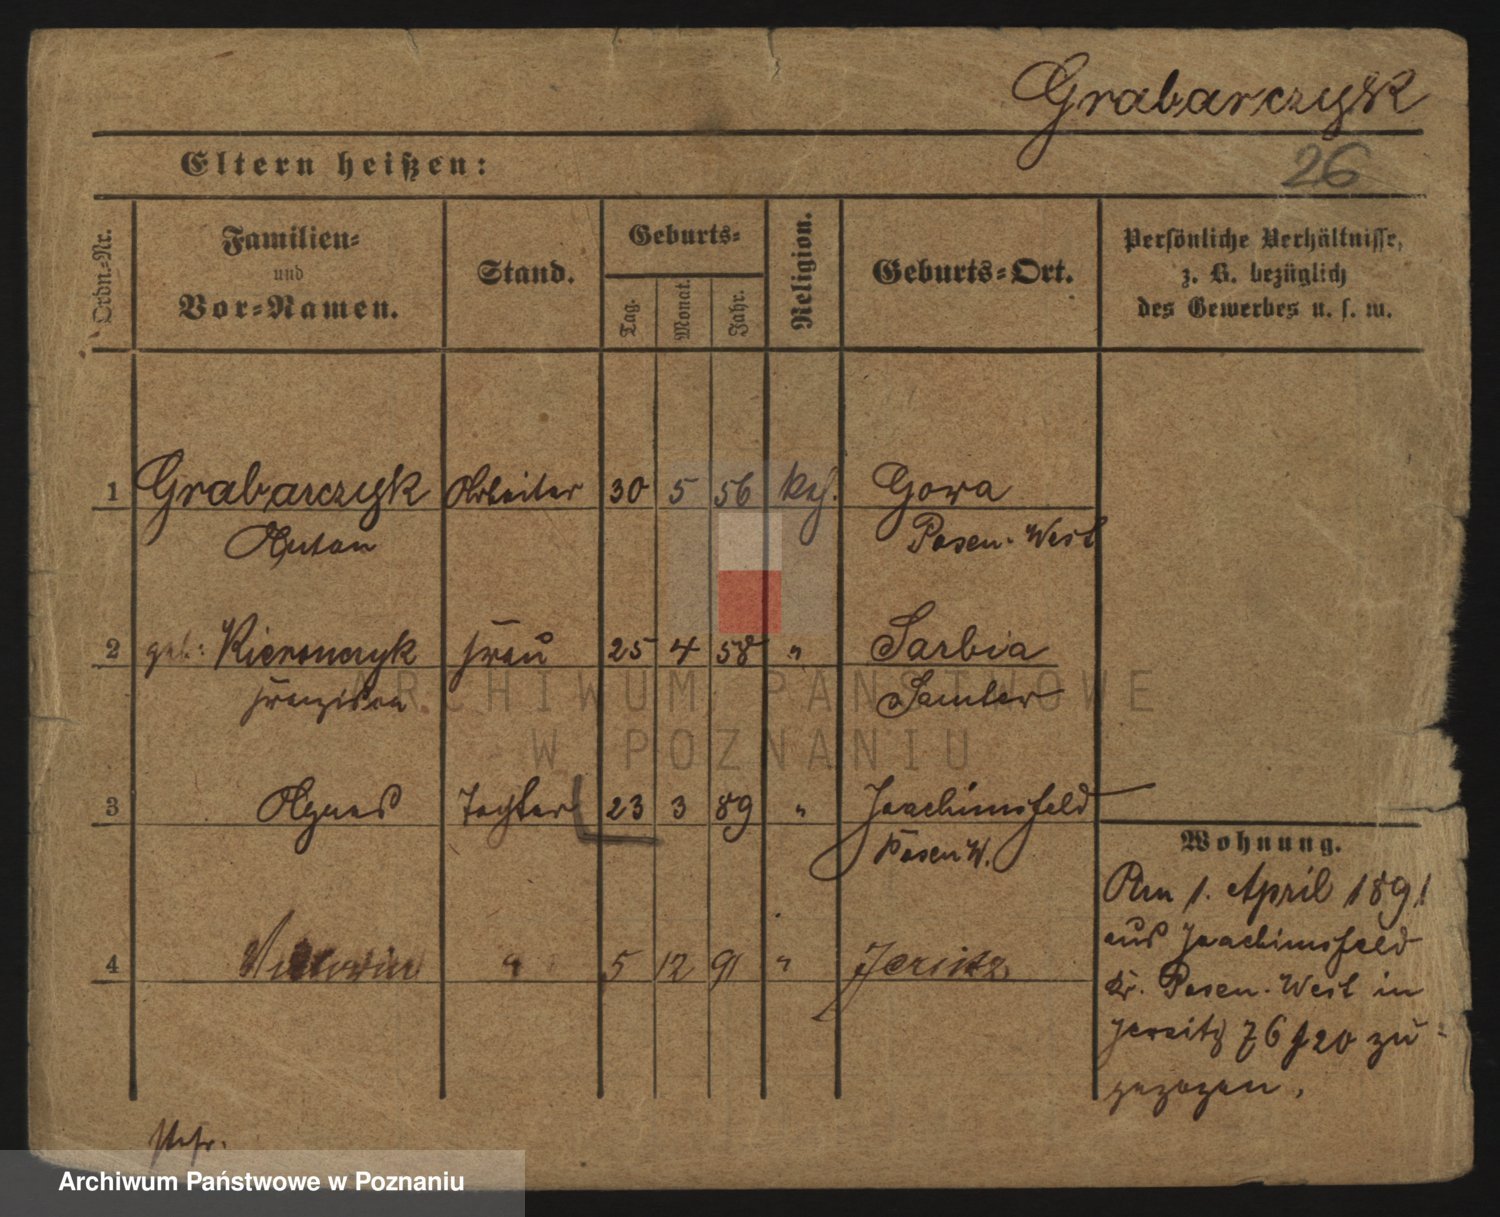 Grabarczyk
Eltern heißen:
26
Ordn.-Nr.
Familien-
und
Vor-Namen.
Stand.
Geburts-
Tag.
Monat.
Jahr.
Religion.
Geburts-Ort.
Persönliche Verhältnisse,
z. B. bezüglich
des Gewerbes u. s. w.
1 Grabarczyk Arbeiter 30 5 56 kath. Gora
Anton Posen-West
2 geb: Kieronczyk Frau 25 4 58 " Sarbia
Franziska Samter
3 Agnes Tochter 23 3 89 " Joachimsfeld
Posen W.
Wohnung.
Am 1. April 1891
aus Joachimsfeld
Kr. Posen-West in
Jersitz 76 f 20 zu-
gezogen.
4 " 5 12 91 " Jersitz
ARCHIWUM PAŃSTWOWE
W POZNANIU
Archiwum Państwowe w Poznaniu